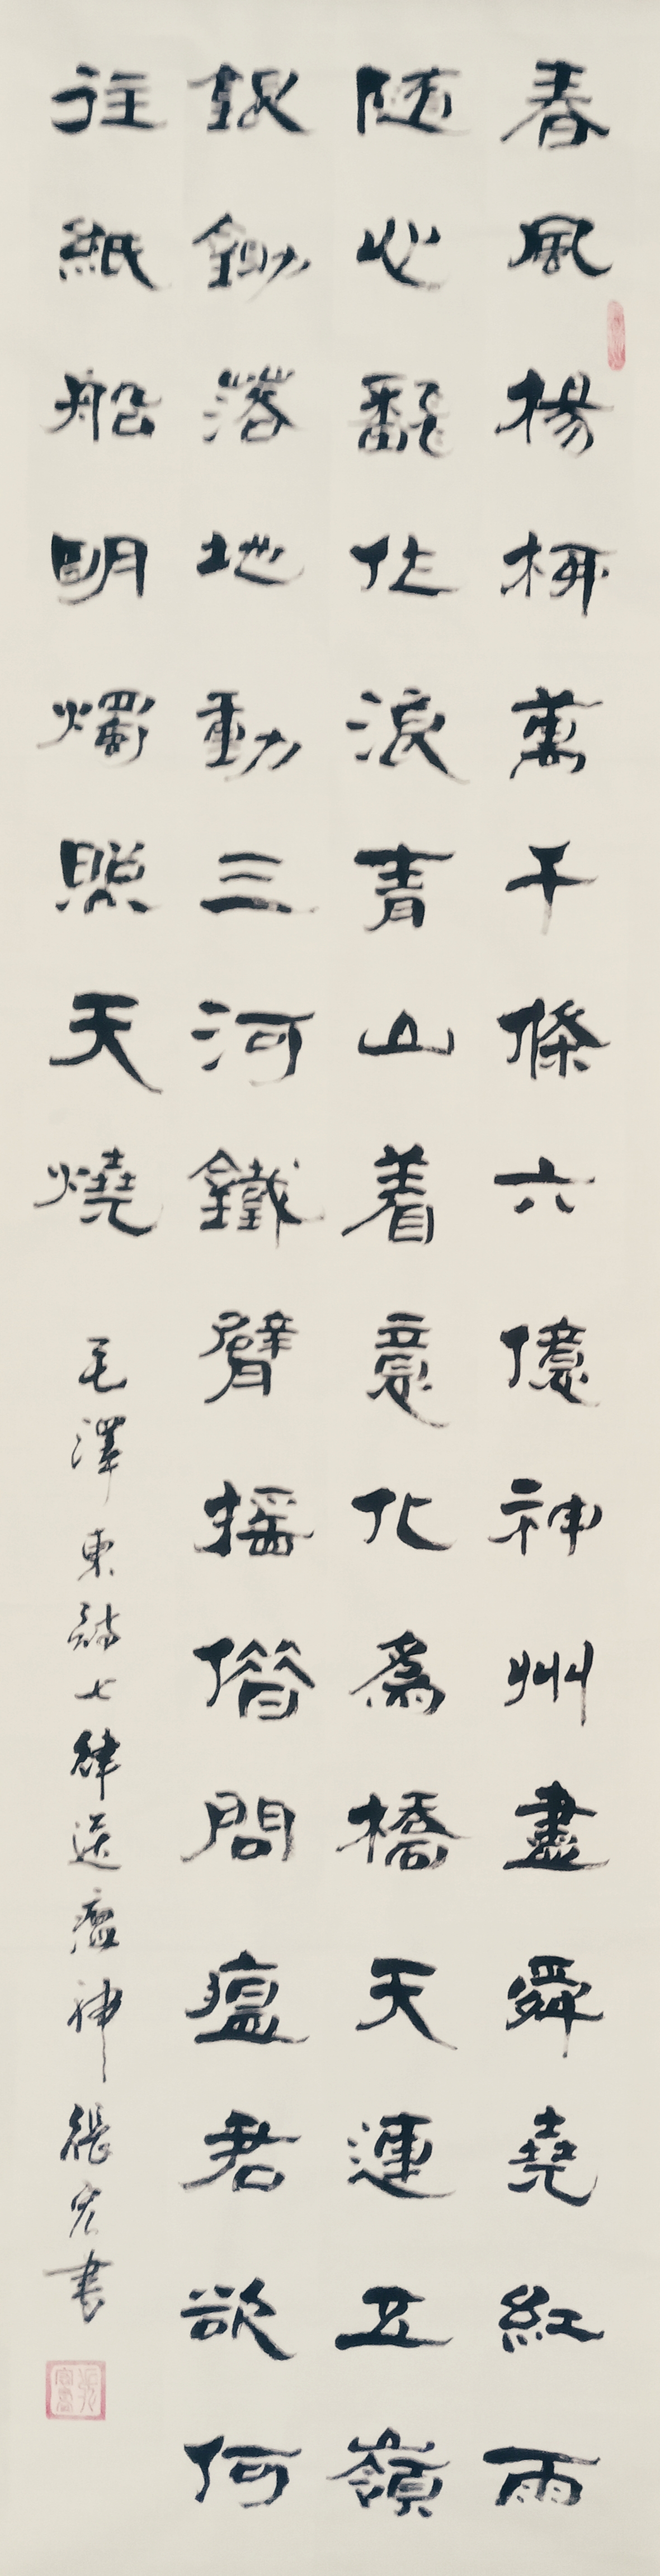 春風楊柳萬千條六億神州盡舜堯紅雨
随心翻作浪青山着意化爲橋天連五嶺
銀鋤落地動三河鐵臂摇借問瘟君欲何
往紙船明燭照天燒 毛澤東詩七律送瘟神 張宏書